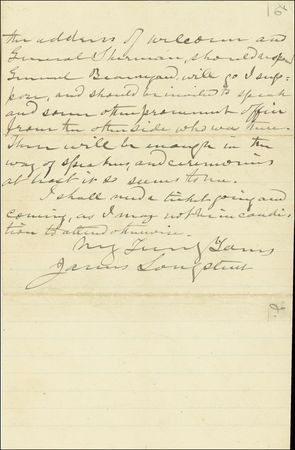 the address of welcome and
General Sherman, should respond
General Beauregard, will go I sup-
pose, and should be invited to speak
and some other prominent officer
from the other side who was there.
There will be enough in the
way of speaking, and ceremonies
at least it so seems to me.
I shall need a ticket going and
coming, as I may not be in condi-
tion to attend otherwise.
Very Truly Yours
James Longstreet